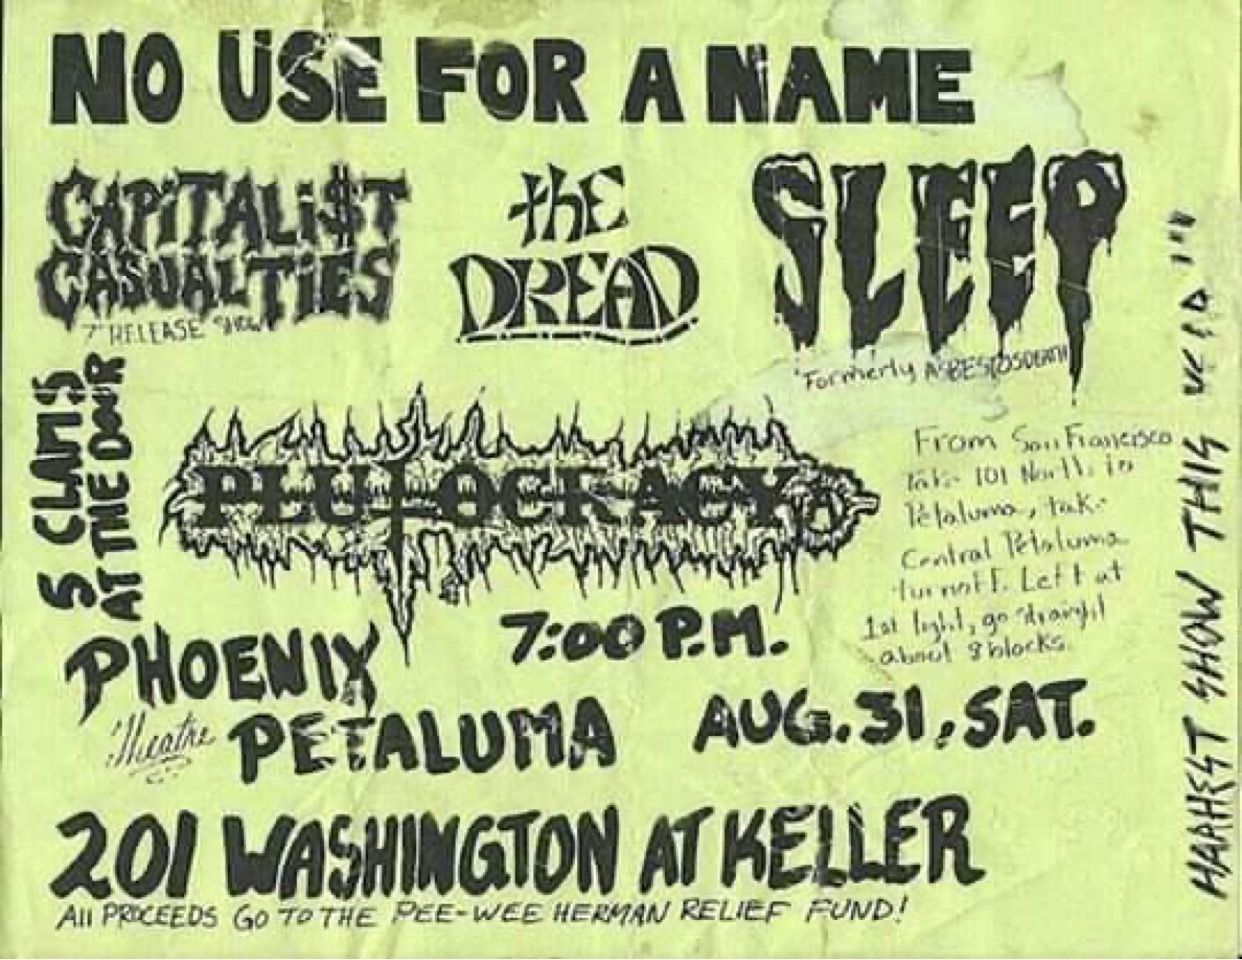 NO USE FOR A NAME
CAPITALI$T
CASUALTIES
7" RELEASE SHOW
the
DREAD
SLEEP
"Formerly ASBESTOSDEATH
5 CLAMS
AT THE DOOR
PLUTOCRACY
From San Francisco
Take 101 North, in
Petaluma, take
Central Petaluma
turnoff. Left at
1st light, go straight
about 8 blocks.
7:00 P.M.
PHOENIX
Theatre
PETALUMA
AUG. 31, SAT.
201 WASHINGTON AT KELLER
All PROCEEDS GO TO THE PEE-WEE HERMAN RELIEF FUND!
SHOW THIS